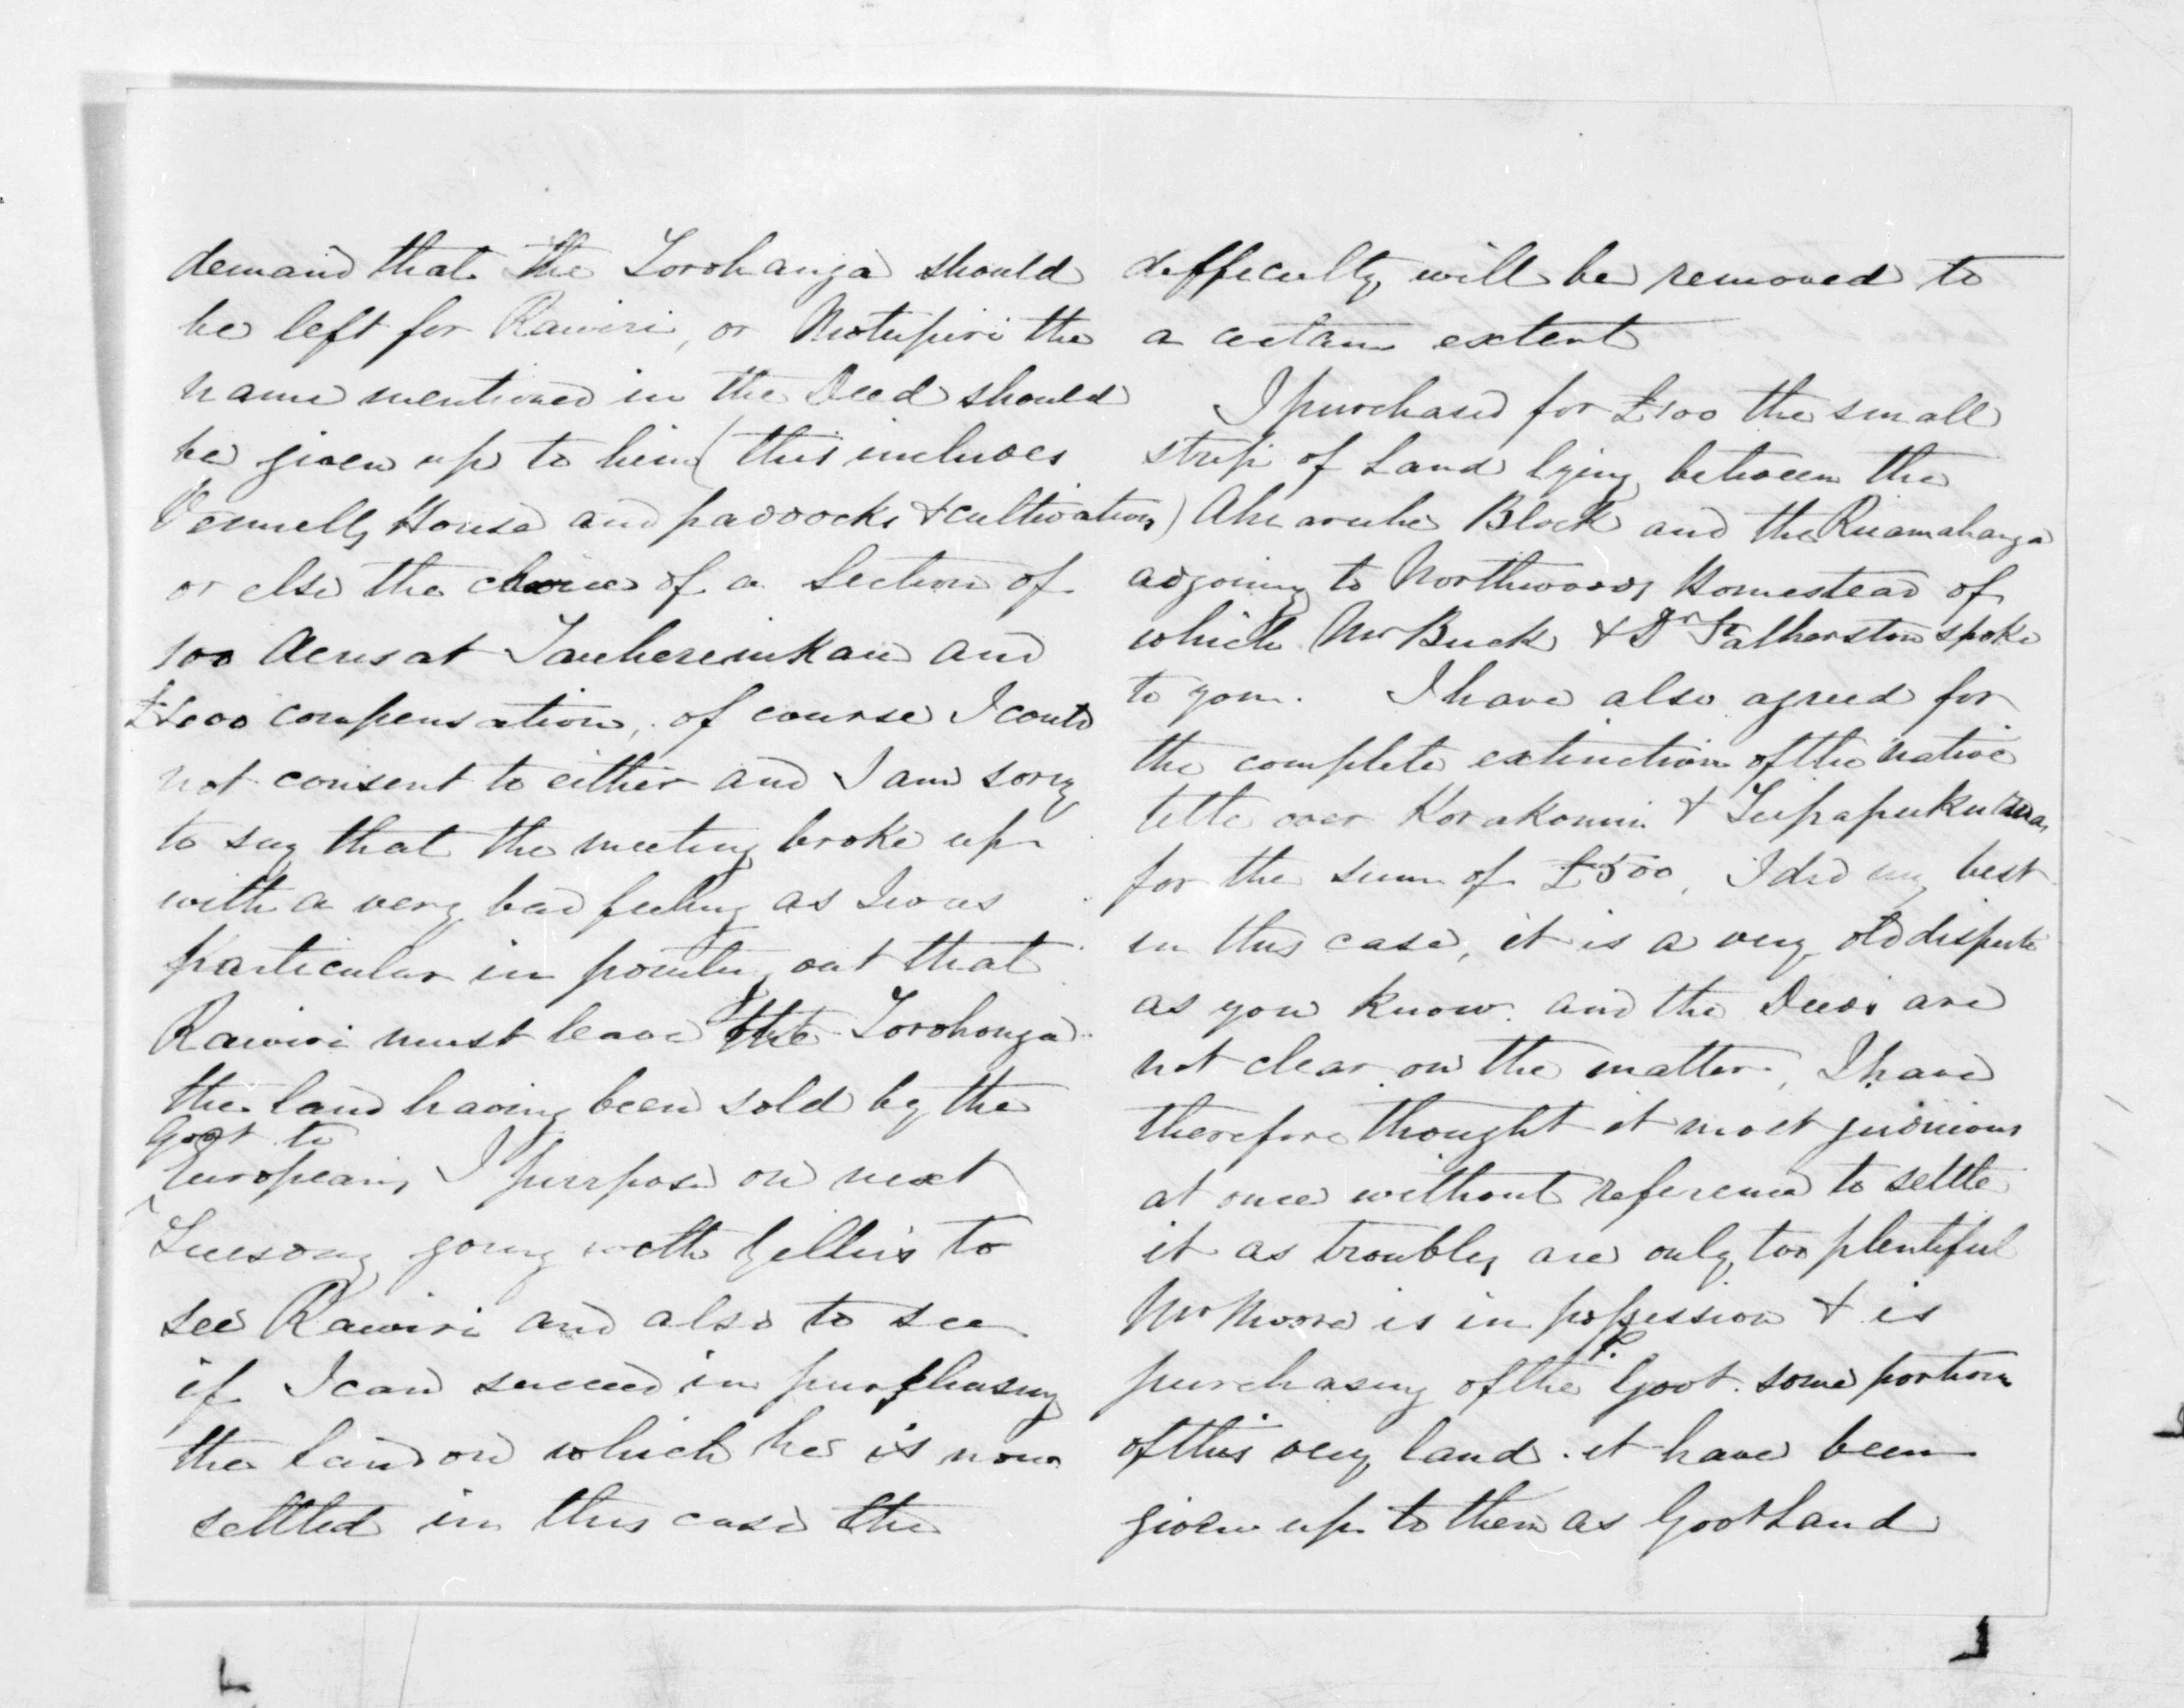 demand that the Torohanga should
be left for Rawiri, or Motupiri the
name mentioned in the Deed should
be given up to him (this includes
Vennells House and paddocks & cultivations)
or else the choice of a Section of
100 Acres at Tauherenikau and
£1000 compensation, of course I could
not consent to either and I am sorry
to say that the meeting broke up
with a very bad feeling as I was
particular in pointing out that
Rawiri must leave the Torohonga
the land having been sold by the
Govt to
Europeans, I purpose on next
Tuesday going with Gillies to
see Rawiri and also to see
if I can succeed in purchasing
the land on which he is now
settled in this case the
difficulty will be removed to
a certain extent
I purchased for £100 the small
strip of Land lying between the
Ahiaruhe Block and the Ruamahanga
adjoining to Northwoods Homestead of
which Mr Buck & Dr Fatherston spoke
to you. I have also agreed for
the complete extinction of the native
title over Korakonui &
for the sum of £500, I did my best
in this case, it is a very old dispute
as you know and the Deeds are
not clear on the matter, I have
therefore thought it most judicious
at once without reference to settle
it as troubles are only too plentiful
Mr Moore is in possession & is
purchasing of the P. Govt. some portion
of this very land. it have been
given up to them as Govt Land